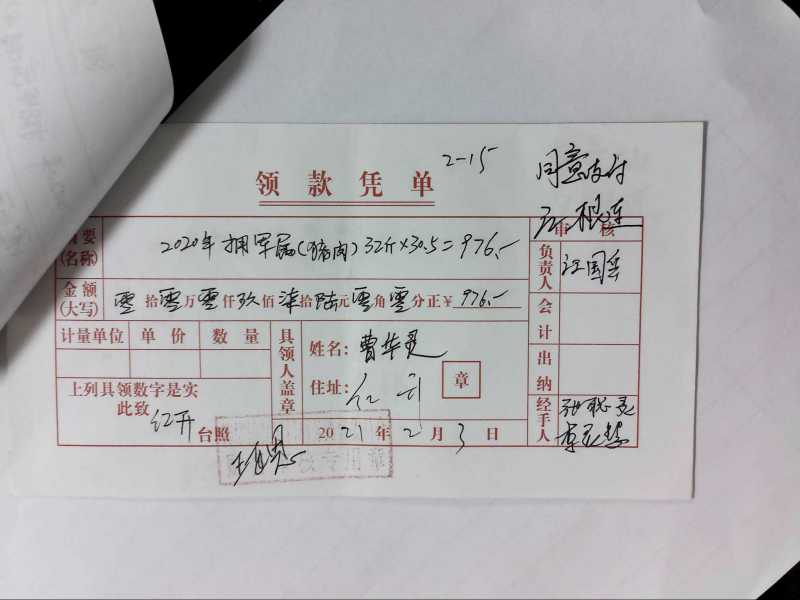 2-15
同意支付
领款凭单
审核
要
(名称)
2020年拥军属(猪肉)32斤×30.5=976.-
负责人
金额
(大写)
零拾零万零仟玖佰柒拾陆元零角零分正¥976.-
会计
计量单位 单价 数量
具领人盖章
姓名:曹华灵
住址:红开
章
出纳
上列具领数字是实
此致
红开台照
2021年2月3日
经手人